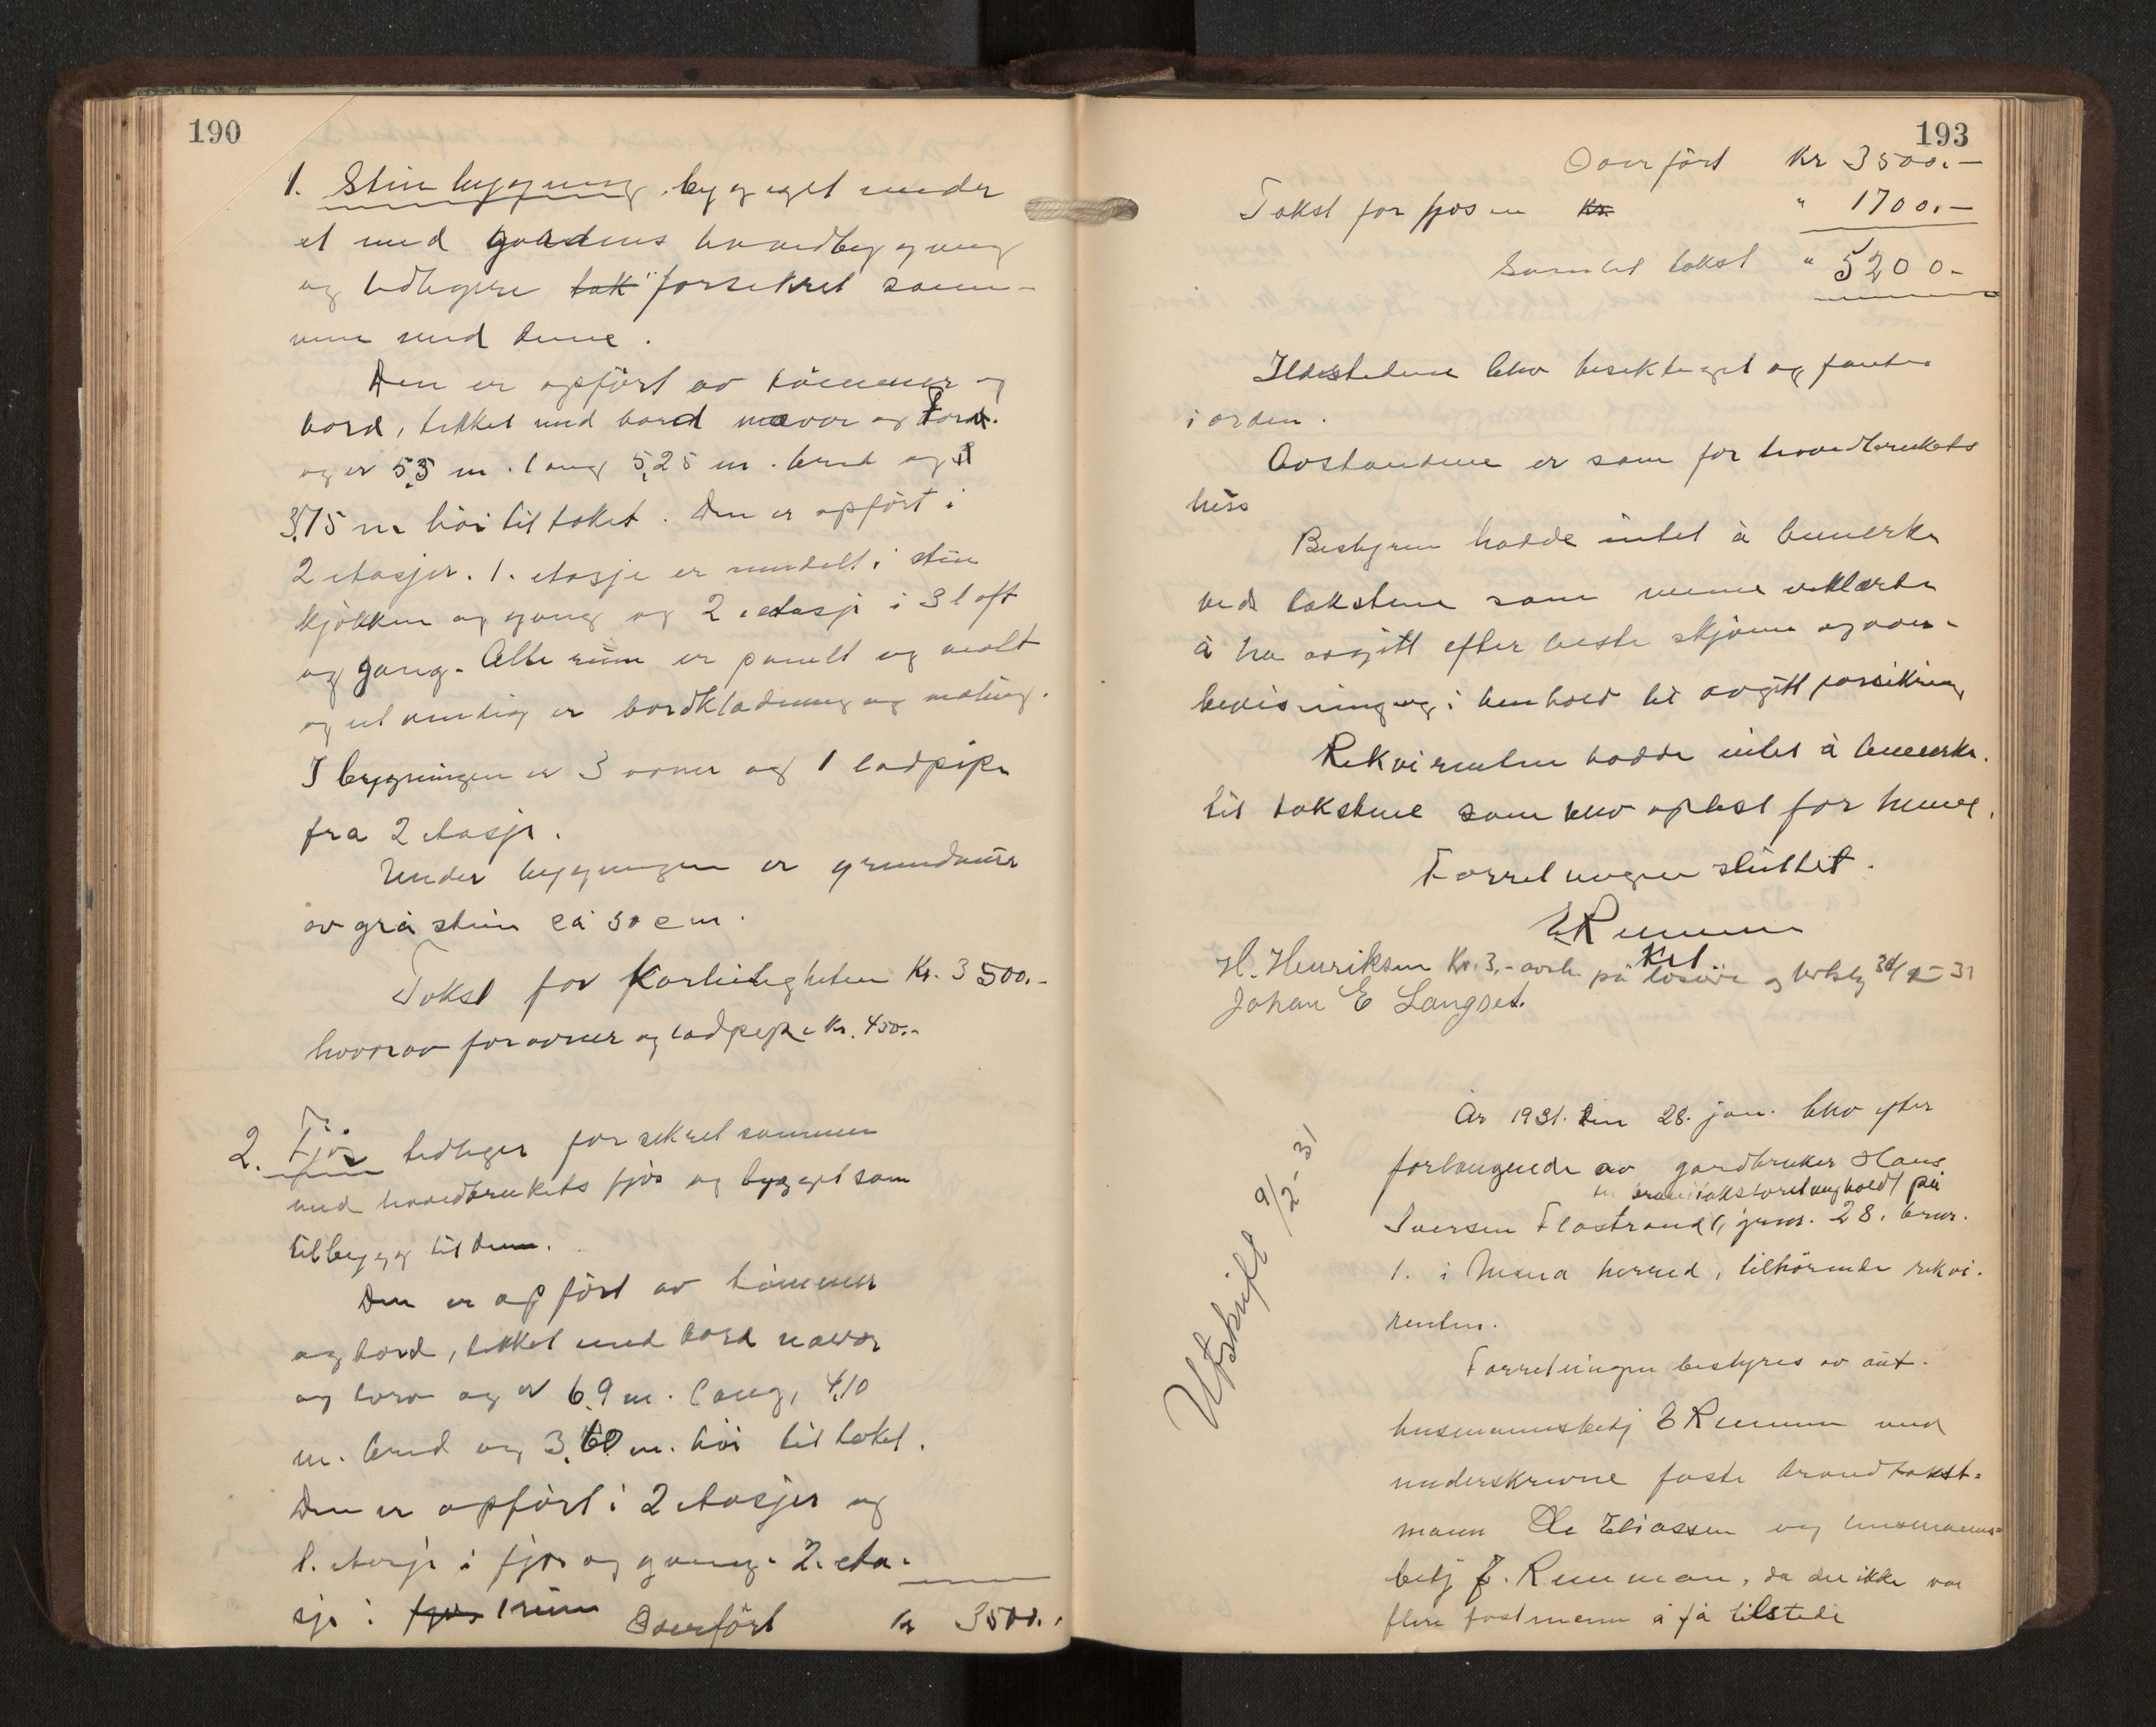 190
1. Stuebygning bygget under
et med gardens hovedbygning
og tidligere tak forsikret sam-
men med denne.
Den er opført av tømmer og
bord, tekket med bord næver og torv.
og er 5,5 m. lang 5,25 m. bred og
3,75 m høi til taket. Den er opført i
2 etasjer. 1. etasje er inndelt i stue
kjøkken og gang og 2 etasje i 3 loft
og gang. Alle rum er panelt og malt
og utvendig er bordklædning og maling.
I bygningen er 3 ovner og 1 ladpipe
fra 2 etasje.
Under bygningen er grundmur
av gråstein ca 50 cm.
Takst for Kr. 3500.-
hvorav for ovner og ladpipe Kr. 450.-
2. Fjøs tidligere forsikret sammen
med hovedbrukets fjøs og bygget som
tilbygg til denne.
Den er opført av tømmer
og bord, tekket med bord næver
og torv og er 6,9 m. lang, 4,10
m. bred og 3,60 m. høi til taket.
Den er opført i 2 etasjer og
1. etasje i fjøs og gang. 2. eta-
sje i fjøs 1 rum
Overført kr 3500.-
193
Overført Kr 3500.-
Takst for fjøsen Kr. " 1700.-
Samlet takst " 5200-
Ildstedene blev besiktiget og fantes
i orden.
Avstandene er som for hovedbrukets
hus
Bestyreren hadde intet å bemerke
ved takstene som mennene erklærte
å ha avgitt efter beste skjønn og over-
bevisning og i henhold til avgitt forsikring
Rekvirenten hadde intet å bemerke.
til takstene som blev oplest for henne.
Forretningen sluttet.
E Remmem
H. Henriksen Kr. 3,- på
Johan E Langset.
Utskrift 9/2-31
År 1931. den 28. jan. blev efter
forlangende av gardbruker Hans
branntakstforretning holdt på
Iversen Flostrand, gnr. 28. bnr.
1. i Mana herred, tilhørende rekvi-
renten.
Forretningen bestyres av aut.
lensmannsbetj E Remmem med
underskrevne faste brandtakst-
mann Ole Eliassen og lensmanns-
betj J. Remman, da der ikke var
flere fastmenn å få tilstede